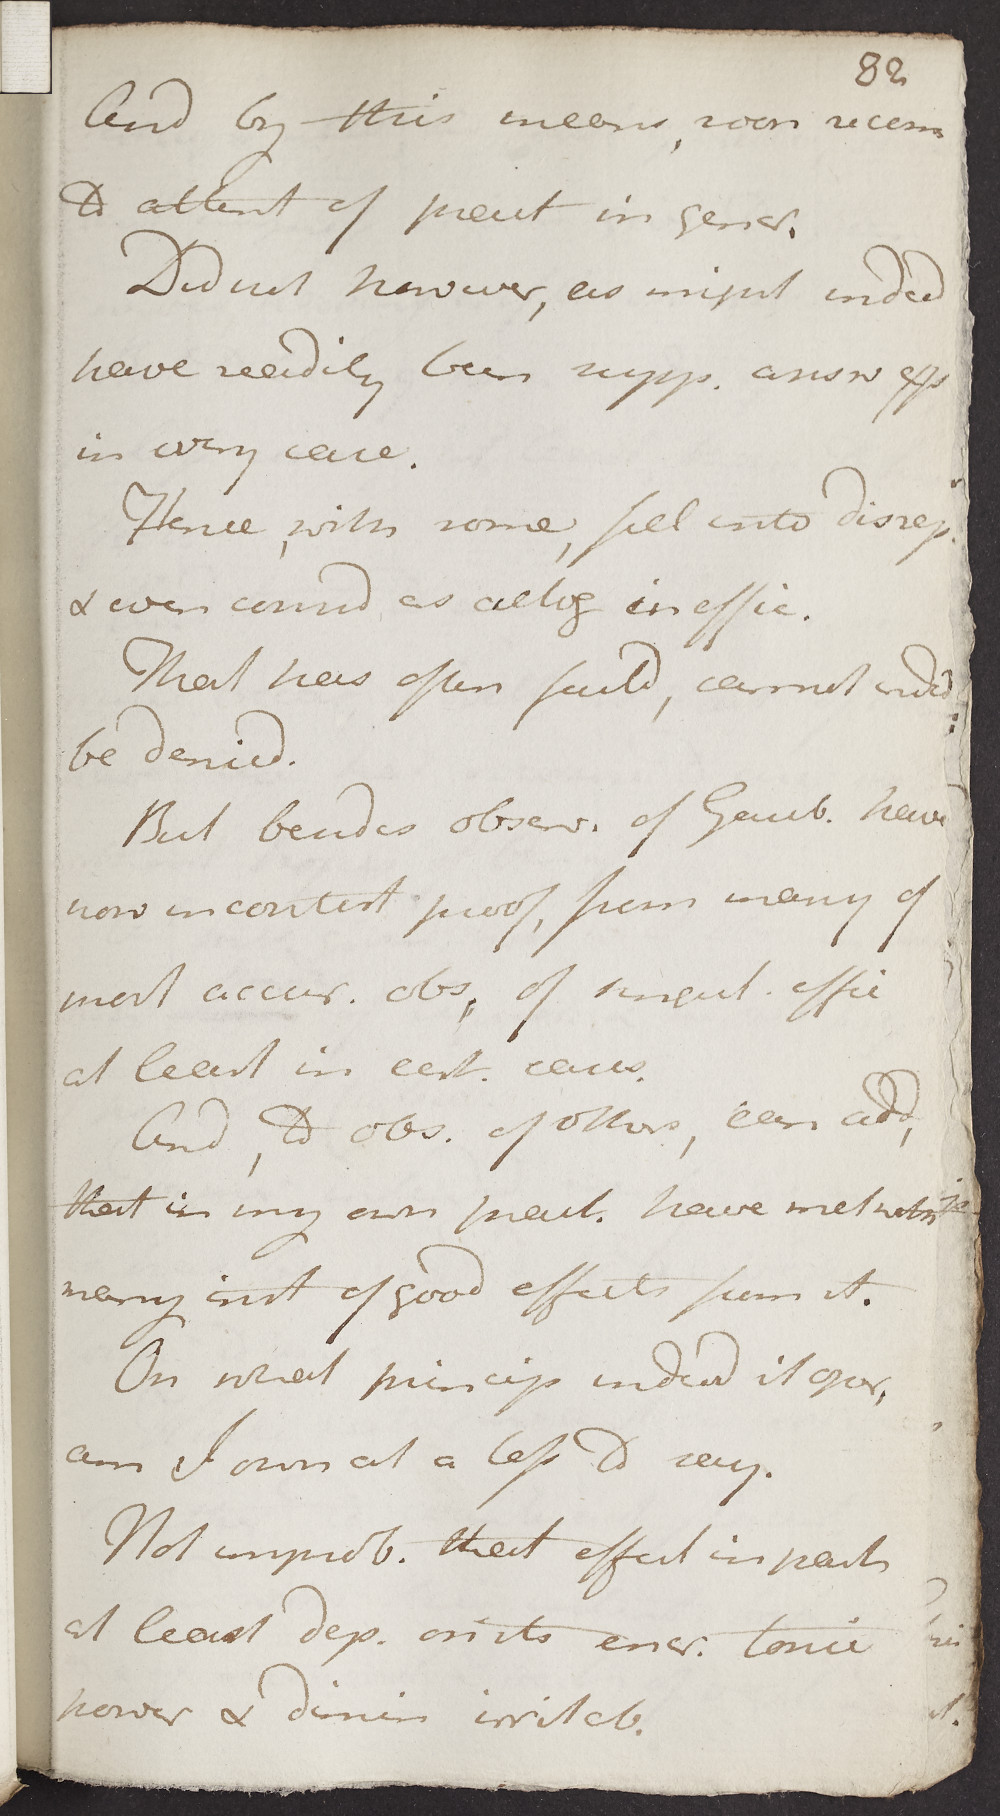 82
And by this means, soon recom
to attent of pract in gener.
Did not however, as might indeed
have readily been supp. answ exp
in every case.
Hence, with some, fell into disrep.
& even consid as altog ineffic.
That has often faild, cannot indeed
be denied.
But besides observ. of Gaub. have
now incontest proof, from many of
most accur. obs, of singul. effic
at least in cert. cases.
And, to obs. of others, can add,
that in my own pract. have met with
many inst of good effects from it.
On what princip indeed it oper,
am I own at a loss to say.
Not improb. that effect in part
at least dep. on its ener. tonic
power & dimin irritab.